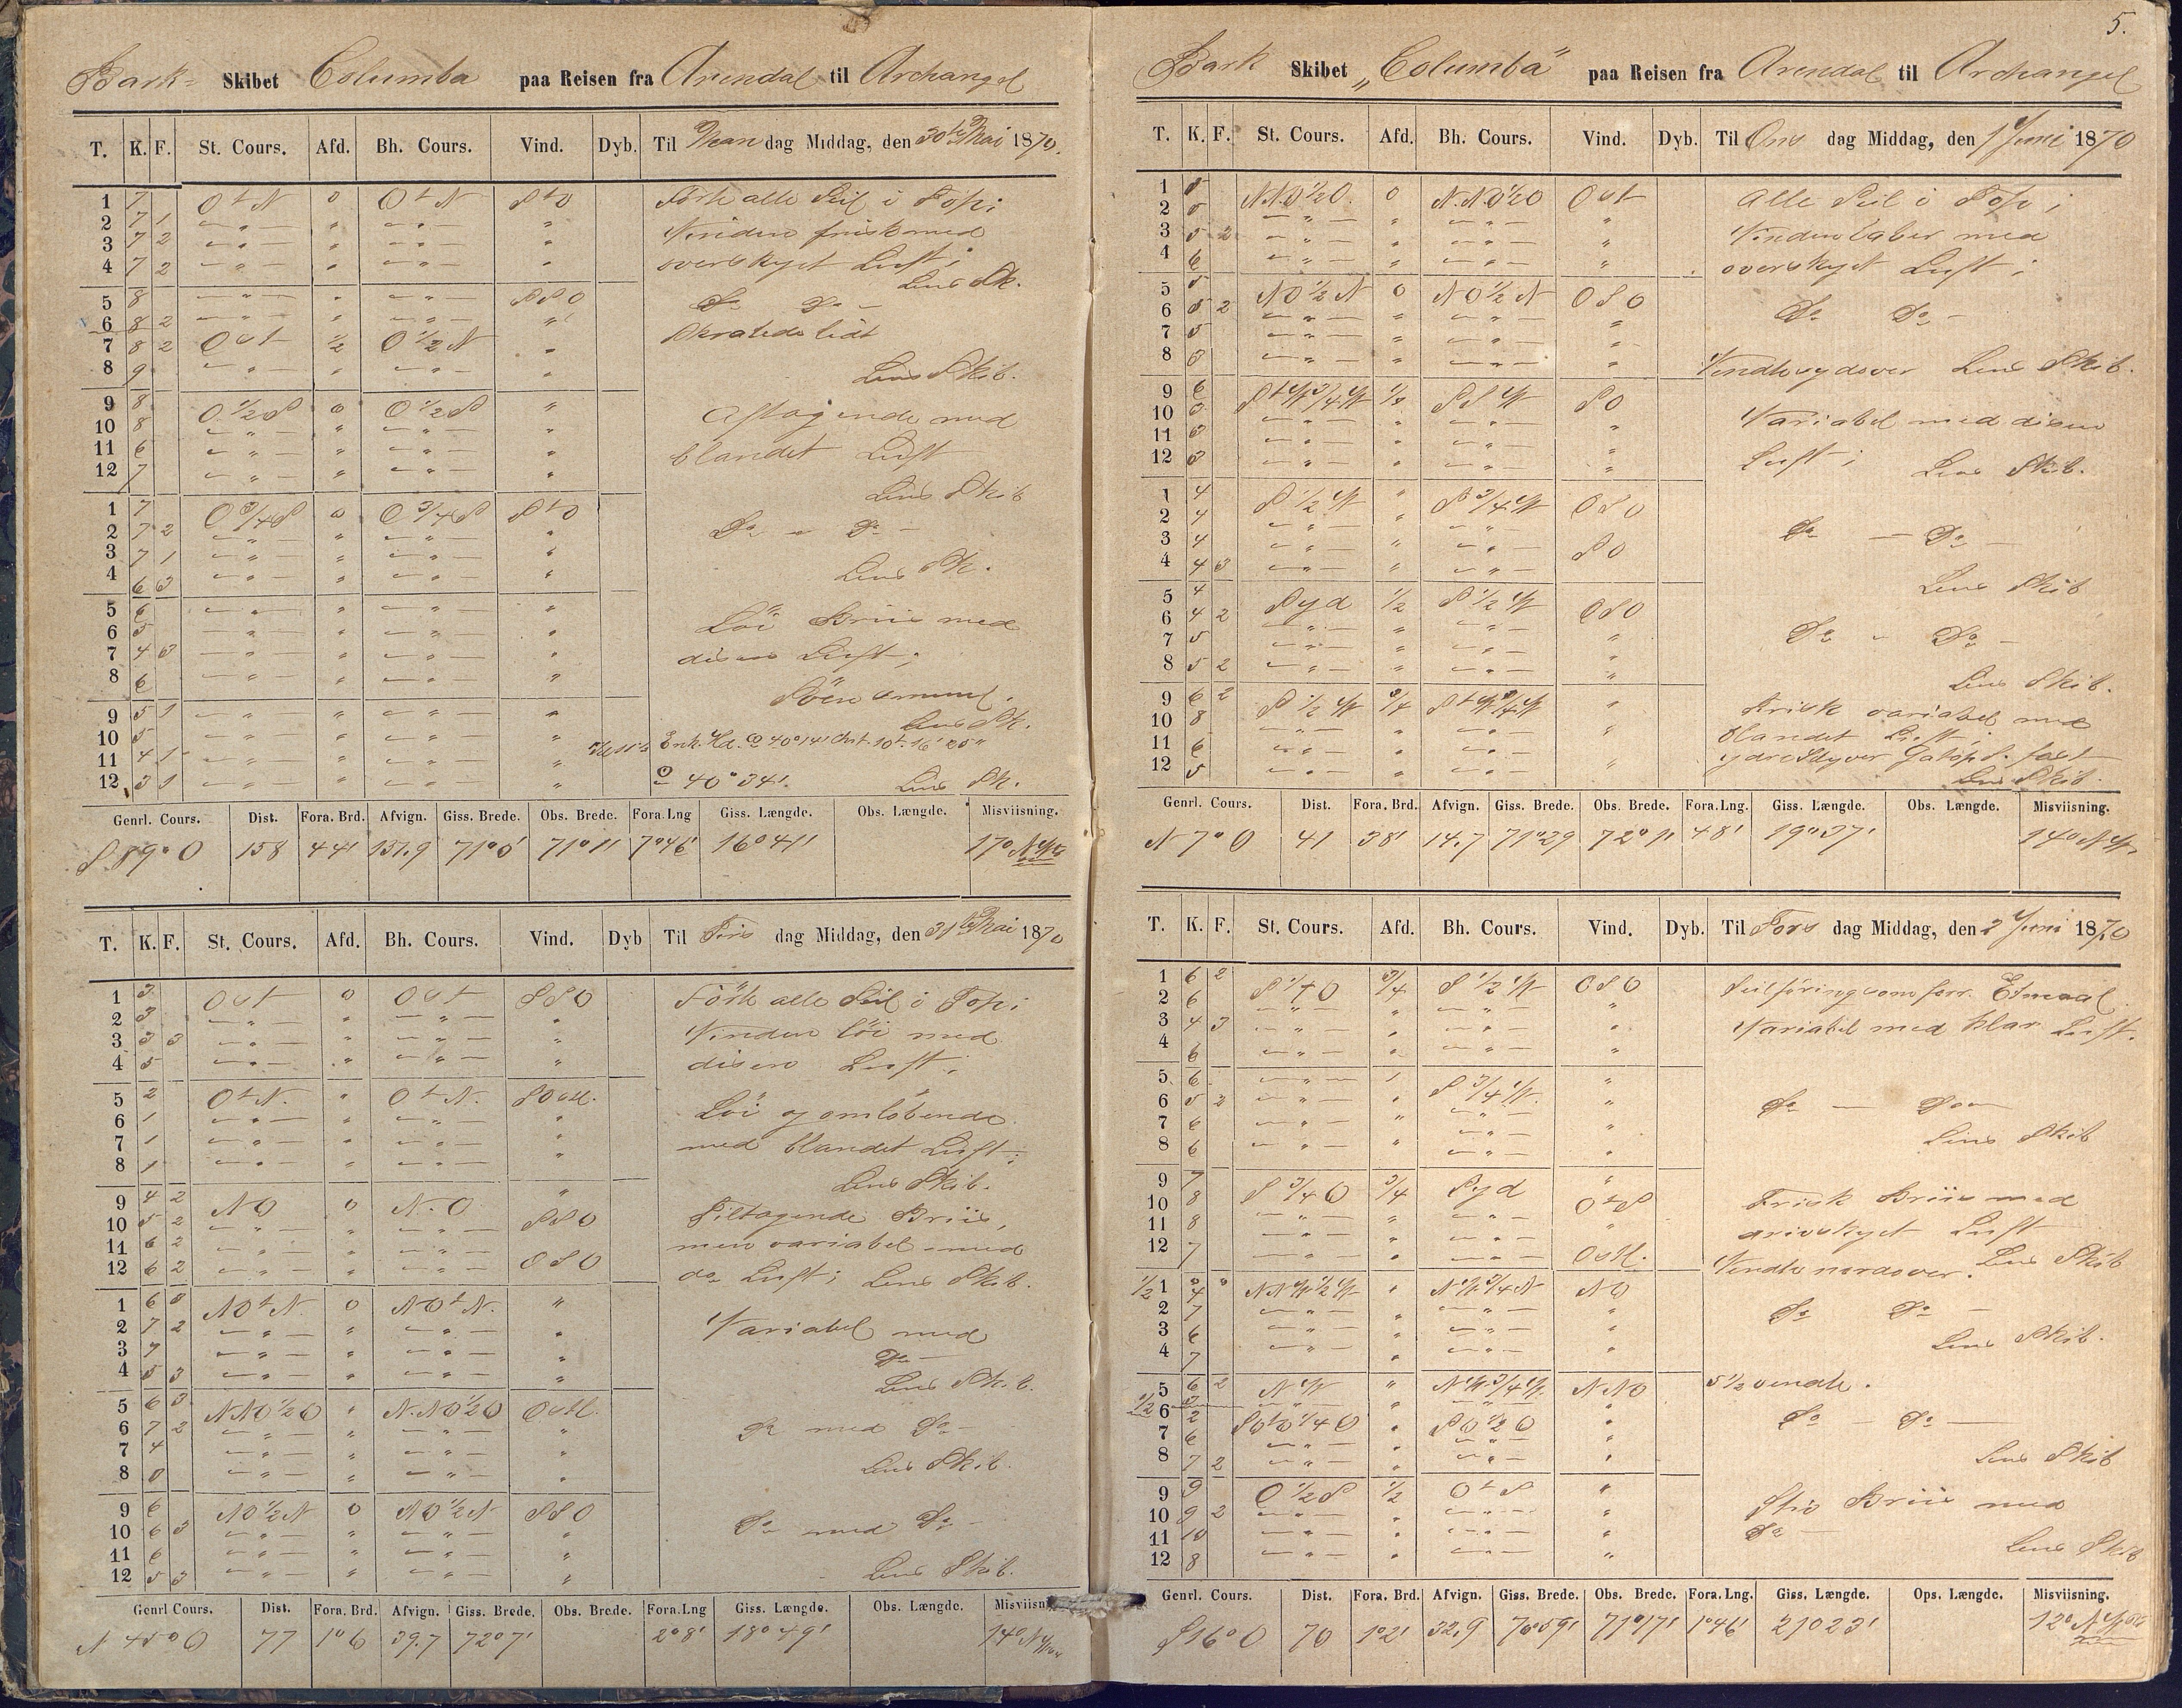 Bark- Skibet Columba paa Reisen fra Arendal til Archangel
T. K. F. St. Cours. Afd. Bh. Cours. Vind. Dyb. Til Man dag Middag, den 30te Mai 1870.
1 7 O t N 0 O t N S t O Förte alle Seil i Top;
2 7 1 — " — " — " — " Vinden frisk med
3 7 2 — " — " — " — " overskyet Luft;
4 7 2 — " — " — " — " Lens Sk.
5 8 — " — " — " — SSO Do Do —
6 8 2 — " — " — " — "
7 8 2 Ost ½ O ½ N "
8 9 — " — " — " — " Lens Skib.
9 8 O ½ S 0 O ½ S " Aftagende med
10 8 — " — " — " — "
11 6 — " — " — " — " blandet Luft
12 7 — " — " — " — " Lens Skib
1 7 O ¾ S 0 O ¾ S S t O
2 7 2 — " — " — " — " Do — Do —
3 7 1 — " — " — " — "
4 6 3 — " — " — " — " Lens Sk.
5 6 — " — " — " — " Löi Briis med
6 5 — " — " — " — "
7 4 3 — " — " — " — " disen Luft;
8 6 — " — " — " — "
9 5 1 — " — " — " — " Lens Sk.
10 5 — " — " — " — "
11 4 1 — " — " — " — "
12 3 1 — " — " — " — " 40° 34'. Lens Sk.
Genrl. Cours. Dist. Fora. Brd. Afvign. Giss. Brede. Obs. Brede. Fora.Lng Giss. Længde. Obs. Længde. Misviisning.
S 89° O 158 44' 157,9 71° 5' 71° 11' 7° 46' 16° 41' 17° NW
T. K. F. St. Cours. Afd. Bh. Cours. Vind. Dyb Til Tirs dag Middag, den 31te Mai 1870
1 3 Ost 0 Ost SSO Förte alle Seil i Top;
2 3 — " — " — " — "
3 3 3 — " — " — " — " Vinden löi med
4 5 — " — " — " — " disen Luft;
5 2 O t N. " O t N. SOstl. Löi og omlöbende
6 1 — " — " — " — "
7 1 — " — " — " — " med blandet Luft;
8 1 — " — " — " — " Lens Skib.
9 4 2 NO 0 N.O "
10 5 2 — " — " — " — SSO Tiltagende Briis,
11 6 2 — " — " — " — men variabel med
12 6 2 — " — " — " — OSO do Luft; Lens Skib.
1 6 NO t N. 0 NO t N. "
2 7 2 — " — " — " — " Variabel med
3 7 — " — " — " — " Do —
4 5 3 — " — " — " — " Lens Skib.
5 6 3 NNO ½ O " N.NO ½ O Ostl.
6 7 2 — " — " — " — " Do med Do —
7 4 — " — " — " — "
8 — " — " — " — " Lens Skib.
9 6 NO ½ N 0 NO ½ N SSO
10 6 3 — " — " — " — " Do med Do —
11 6 — " — " — " — "
12 5 3 — " — " — " — " Lens Skib.
Genrl Cours. Dist. Fora. Brd. Afvign. Giss. Brede. Obs. Brede. Fora.Lng Giss. Længde. Obs. Længde. Misviisn
N 45° O 77 1° 6 39.7 72° 7' 2° 8' 18° 49' 14° N
5.
Bark Skibet „Columba" paa Reisen fra Arendal til Archangel
T. K. F. St. Cours. Afd. Bh. Cours. Vind. Dyb. Til Ons dag Middag, den 1 Juni 1870
1 5 NNO ½ O. 0 N.NO ½ O Ost Alle Seil i Top;
2 5 — " — " — " — "
3 5 2 — " — " — " — " Vinden laber med
4 6 — " — " — " — " overskyet Luft;
5 5 NO ½ N 0 NO ½ N OSO
6 5 2 — " — " — " — " Do Do —
7 5 — " — " — " — "
8 3 — " — " — " — " Vendte sydover Lens Skib.
9 6 S t W ¾ W SSW SO
10 3 — " — " — " — " Variabel med disen
11 3 — " — " — " — "
12 3 — " — " — " — " Luft; Lens Skib.
1 4 S ½ W " S ¾ W OSO
2 4 — " — " — " — Do — Do —
3 4 — " — " — " — SO
4 4 3 — " — " — " — Lens Skib
5 4 Syd ½ S ½ W OSO
6 4 2 — " — " — " —
7 5 — " — " — " — " Do — Do —
8 5 2 — " — " — " — " Lens Skib.
9 6 2 S ½ W ¾ S t W ¾ W " Frisk variabel med
10 8 — " — " — " — " blandet Luft;
11 6 — " — " — " —
12 5 — " — " — " — " Lens Skib.
Genrl. Cours. Dist. Fora. Brd. Afvign. Giss. Brede. Obs. Brede. Fora.Lng. Giss. Længde. Obs. Længde. Misviisning.
N 7° O 41 38' 14.7 71° 29 72° 11' 48' 19° 37' 14° NW
T. K. F. St. Cours. Afd. Bh. Cours. Vind. Dyb. Til Tors dag Middag, den 2 Juni 1870
1 6 2 S ¼ O ¾ S ½ W OSO Seilföring som forr. Etmaal
2 6 — " — " — " — "
3 4 3 — " — " — " — " Variabel med klar Luft.
4 6 — " — " — " — "
5 6 — " — S ¾ W. "
6 5 2 — " — " — " — " Do —
7 6 — " — " — " — "
8 6 — " — " — " — " Lens Skib
9 7 S ¾ O ¾ Syd "
10 8 — " — " — " — O t S Frisk Briis med
11 8 — " — " — " — " graaskyet Luft
12 7 — " — " — " — Ostl. Vendte nordover. Lens Skib
½ 1 4 NNW ½ W " NW ¾ N NO
2 7 — " — " — " — " Do Do —
3 6 — " — " — " — " Lens Skib.
4 7 — " — " — " — "
5 6 2 NW " NW ¾ W. NNO 5½ vendte.
½ 6 2 SO t O ¼ O " SO ½ O " Do — Do —
7 6 — " — " — " — "
8 7 2 — " — " — " — " Lens Skib
9 9 O ½ S ½ O t S "
10 9 2 — " — " — " — " Stiv Briis med
11 10 — " — " — " — " Do —
12 8 — " — " — " — " Lens Skib
Genrl. Cours. Dist. Fora. Brd. Afvign. Giss. Brede. Obs. Brede. Fora.Lng. Giss. Længde. Ops. Længde. Misviisning.
S 16° O 70 1° 2' 32,9 70° 59' 71° 17' 1° 46' 21° 23' 12° NW